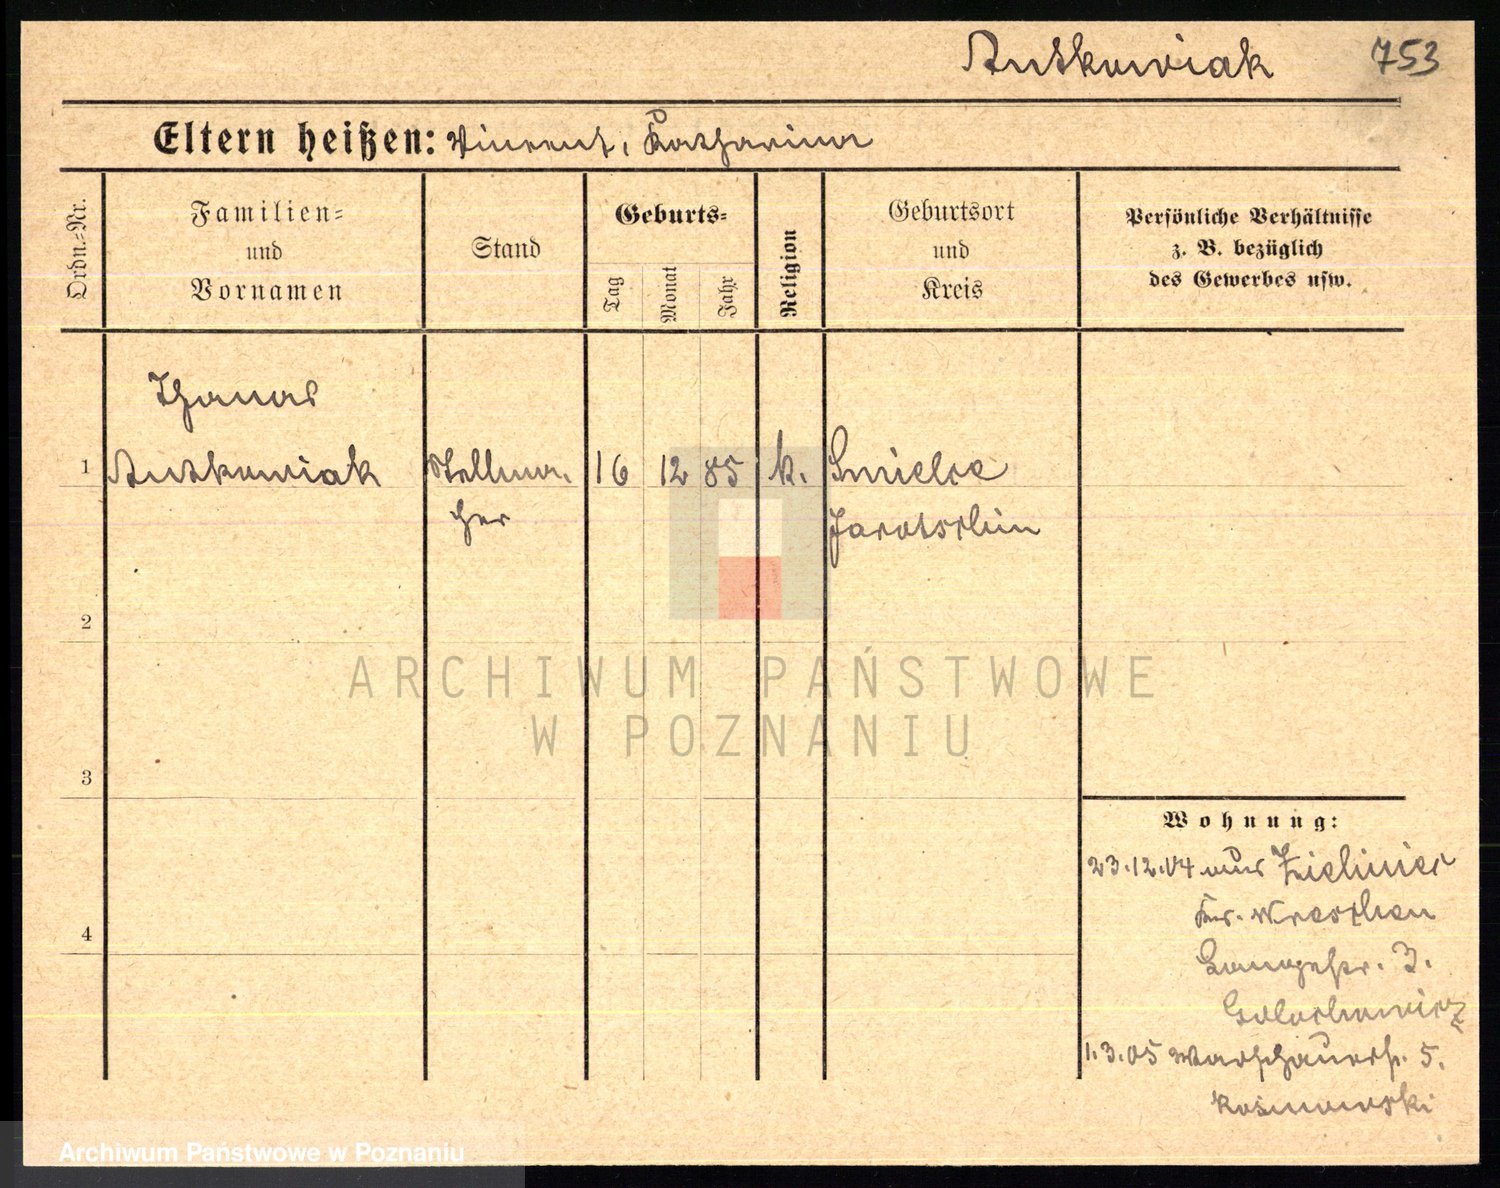 Antkowiak 753
Eltern heißen: Vincent, Katharina
Ordn.=Nr.
Familien=
und
Vornamen
Stand
Geburts=
Tag
Monat
Jahr
Religion
Geburtsort
und
Kreis
Persönliche Verhältnisse
z. B. bezüglich
des Gewerbes usw.
Thomas
1 Antkowiak Stellma- 16 12 85 k. Smielce
cher Jarotschin
2
3
4
Wohnung:
23.12.04 aus Zieliniec
Kr. Wreschen
Langestr. 3.
1.3.05 Warschauerstr. 5.
Kosmowski
ARCHIWUM PAŃSTWOWE
W POZNANIU
Archiwum Państwowe w Poznaniu